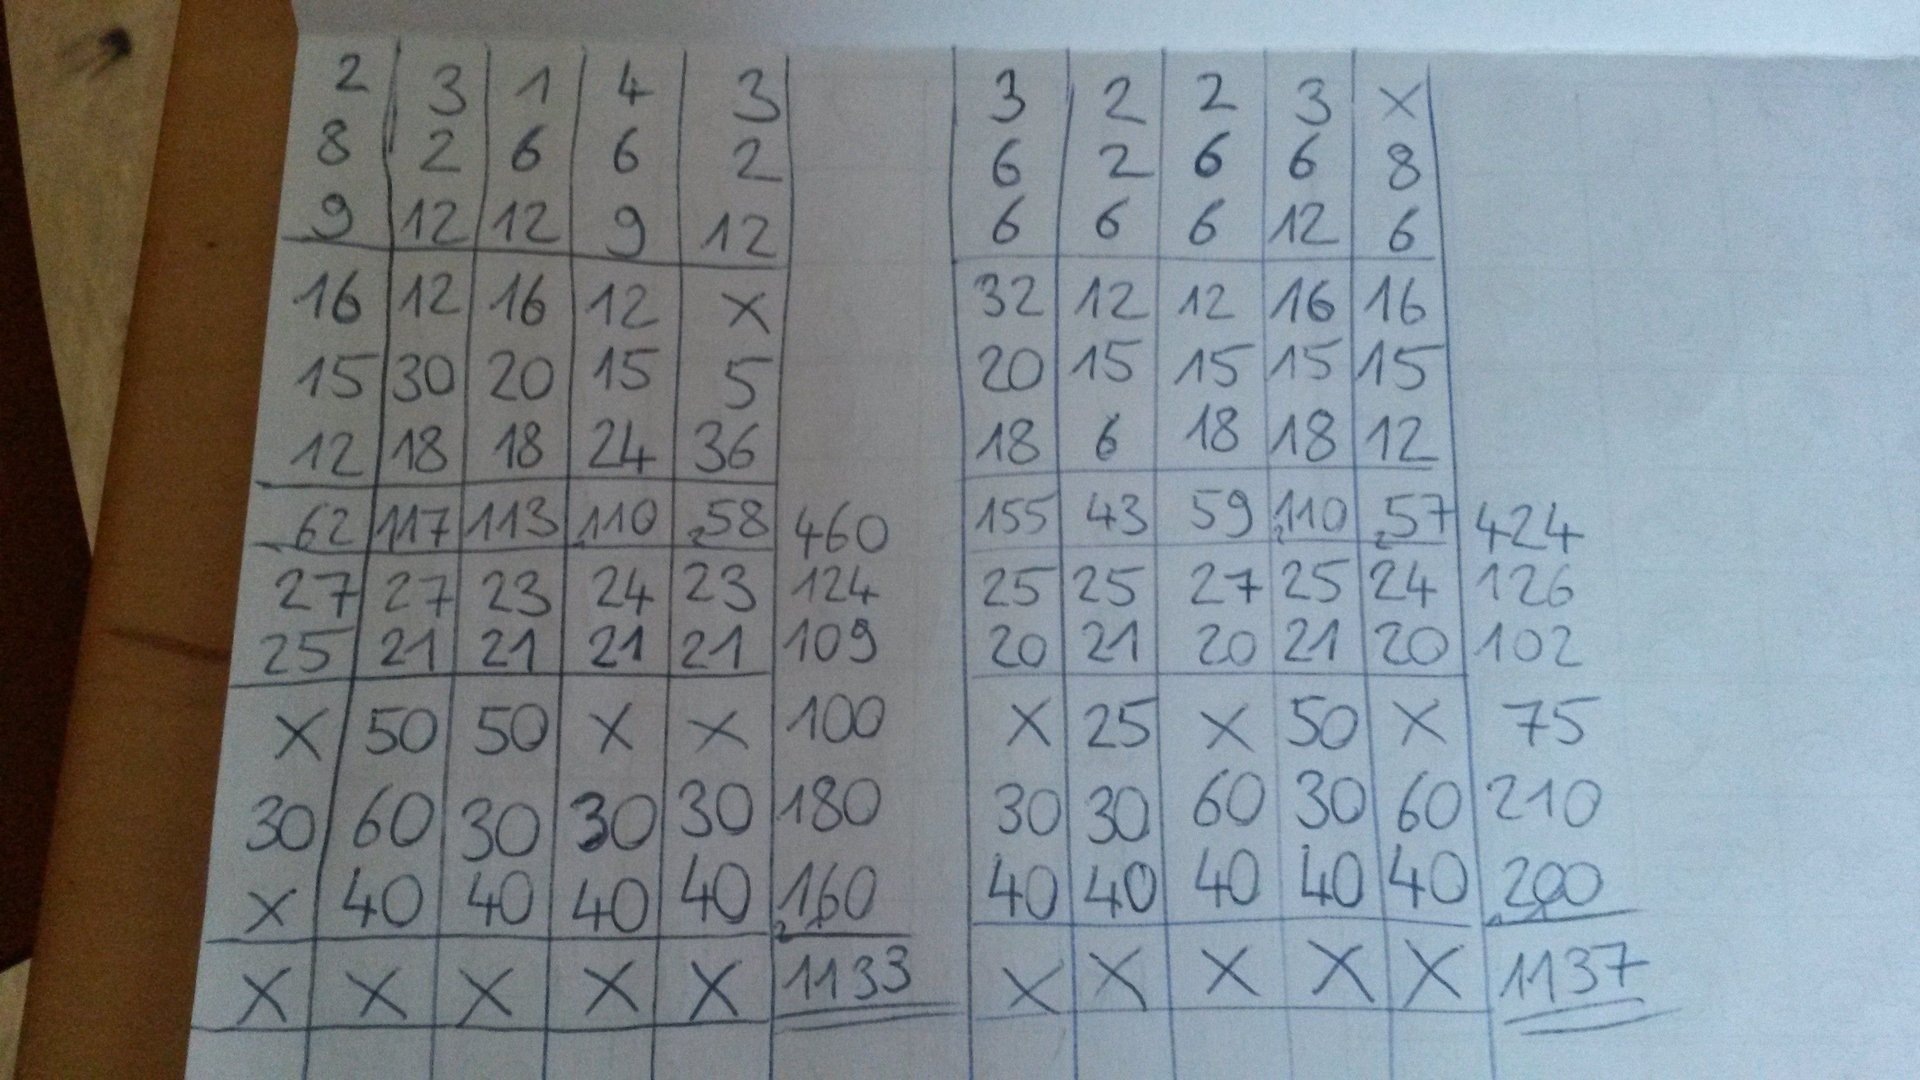 2 3 1 4 3 3 2 2 3 X
8 2 6 6 2 6 2 6 6 8
9 12 12 9 12 6 6 6 12 6
16 12 16 12 X 32 12 12 16 16
15 30 20 15 5 20 15 15 15 15
12 18 18 24 36 18 6 18 18 12
62 117 113 110 58 460 155 43 59 110 57 424
27 27 23 24 23 124 25 25 27 25 24 126
25 21 21 21 21 109 20 21 20 21 20 102
X 50 50 X X 100 X 25 X 50 X 75
30 60 30 30 30 180 30 30 60 30 60 210
X 40 40 40 40 160 40 40 40 40 40 200
X X X X X 1133 X X X X X 1137